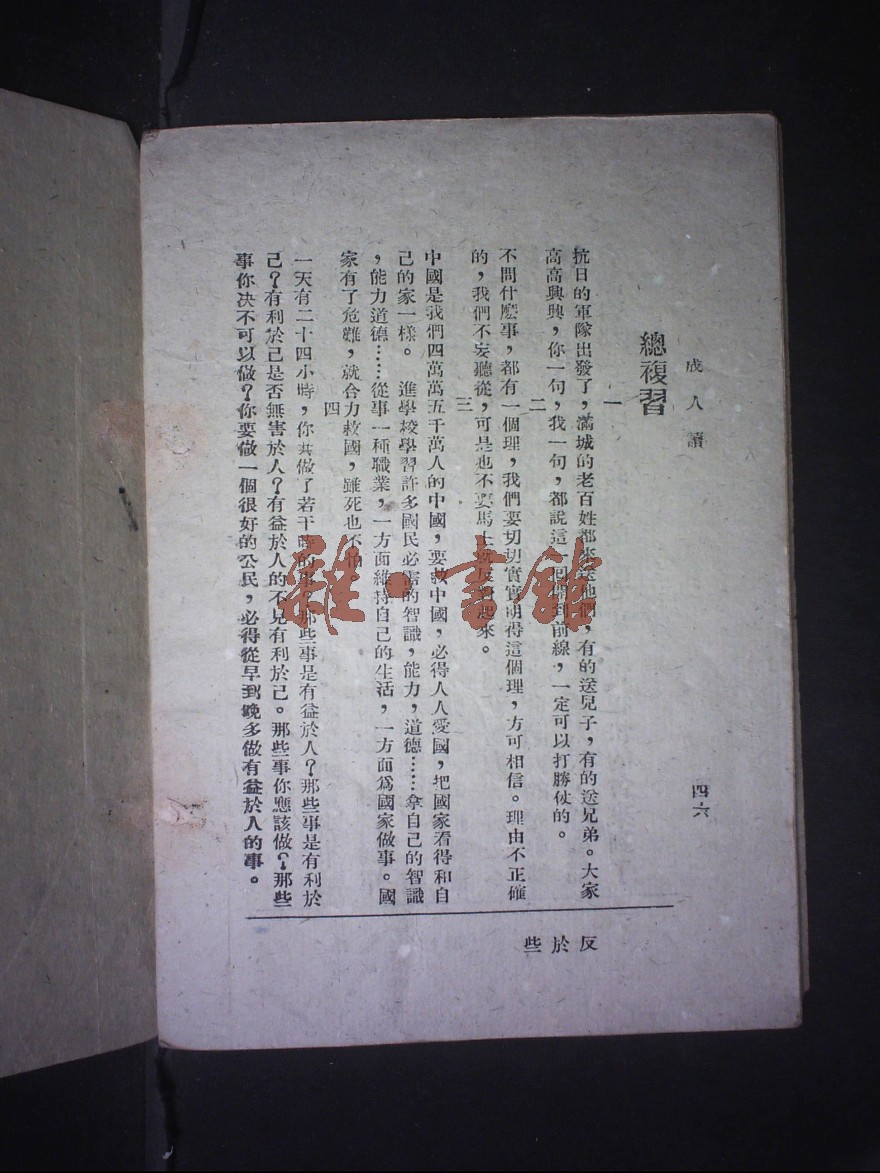 成人讀
四六
總複習
一
抗日的軍隊出發了，滿城的老百姓都來送他們，有的送兒子，有的送兄弟。大家
高高興興，你一句，我一句，都說這一回開到前線，一定可以打勝仗的。
二
不問什麼事，都有一個理，我們要切切實實明得這個理，方可相信。理由不正確
的，我們不妄聽從，可是也不要馬上就反對起來。
三
中國是我們四萬萬五千萬人的中國，要救中國，必得人人愛國，把國家看得和自
己的家一樣。進學校學習許多國民必需的智識，能力，道德……拿自己的智識
，能力道德……從事一種職業，一方面維持自己的生活，一方面爲國家做事。國
家有了危難，就合力救國，雖死也不怕
四
一天有二十四小時，你共做了若干時的事？那些事是有益於人？那些事是有利於
己？有利於己是否無害於人？有益於人的不見有利於己。那些事你應該做？那些
事你决不可以做？你要做一個很好的公民，必得從早到晚多做有益於人的事。
反 於 些
雅·書館